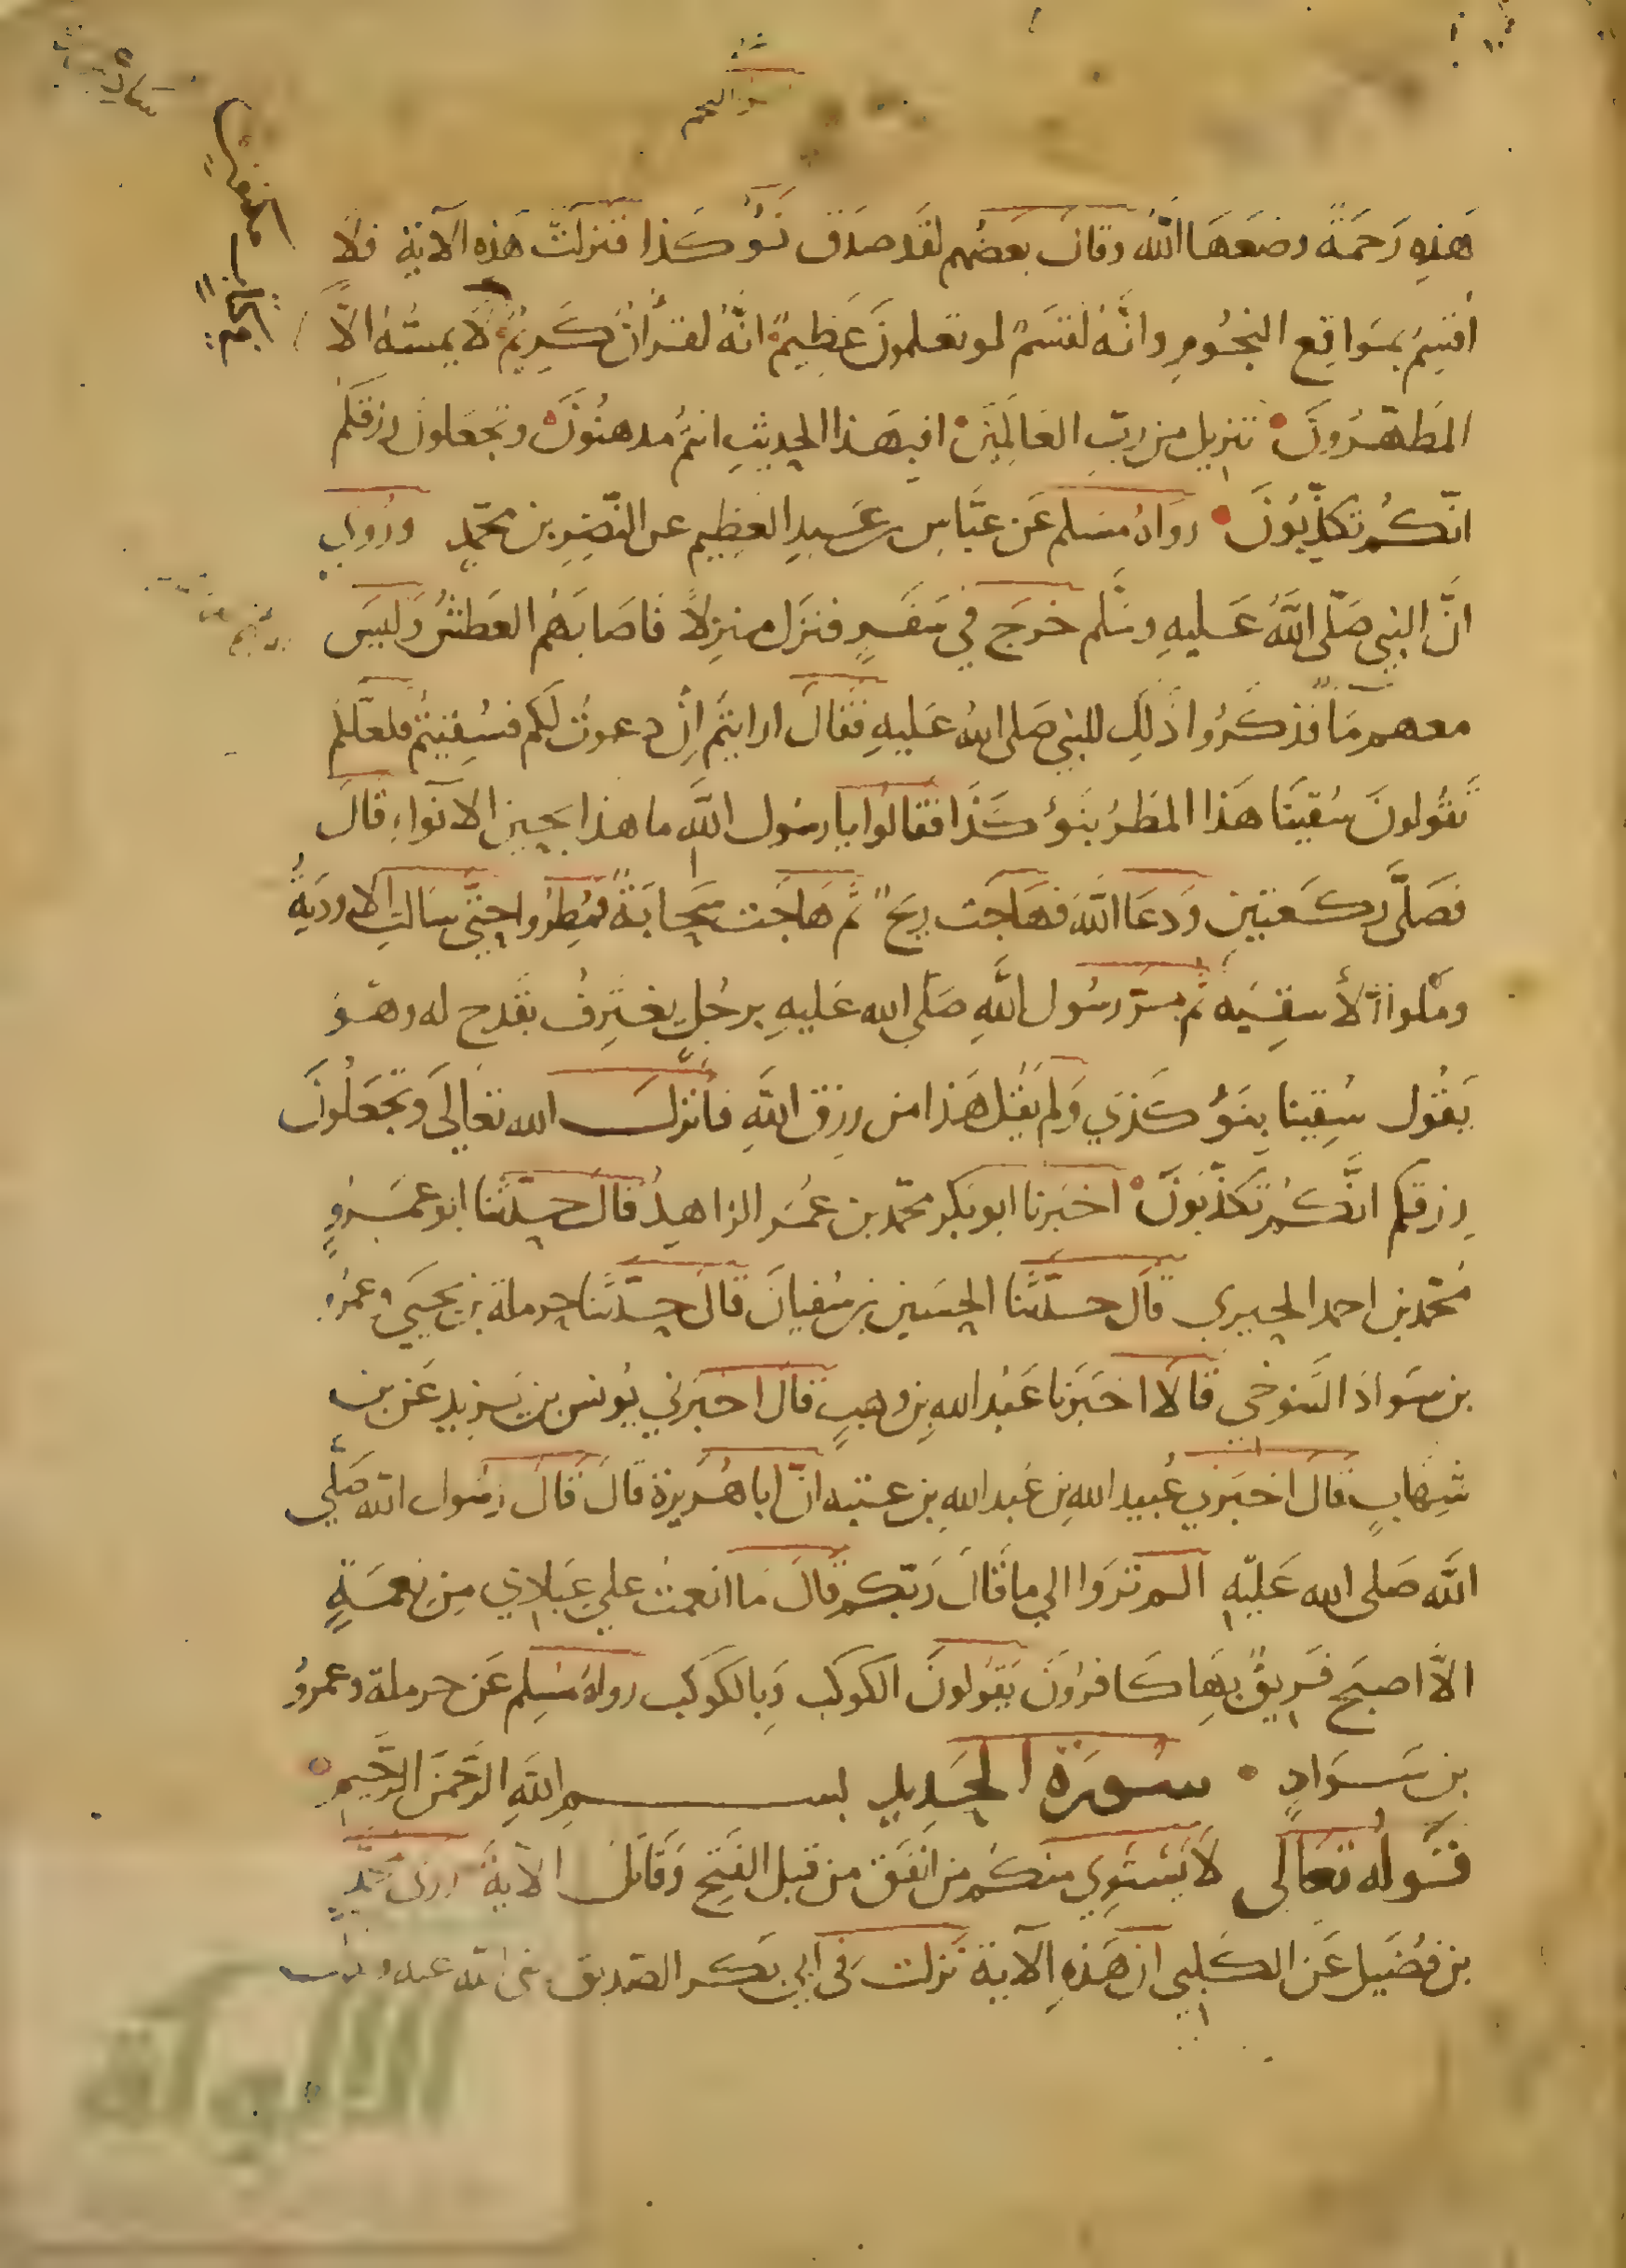 هَذِهِ رَحَمَةً وضَعَهَا اللَّهُ وقالَ بعَضُهم لقَد صدَقَ نَوُّ كَذا فنزلتَ هَذِهِ الآية فلا
اقسِمُ بمَوَاقِع النجُومِ وانَّهُ لقسَمٌ لو تعلمونَ عَظِيمٌ انَّهُ لقرُآنٌ كَرِيمٌ لَا يمسُّهُ الّا
المَطهّرُونَ تنزيل من ربِّ العَالَمِينَ افبهَذا الحديثِ انتمُ مدهنُونَ وتجعَلونَ رزقكم
انّكُم تكذِّبُونَ رواهُ مسَلم عَن عبَّاسِ بن عَبدِ العظِيم عن النّضِرِ بن محمّدٍ ورُوِي
انَّ النبي صَلّى اللَّهُ عَليهِ وسَلَّم خرَجَ فِي سَفَرٍ فنزَل منزِلًا فَاصَابَهُم العَطشُ وَليسَ
معهم مَا فذكَرُوا ذَلِكَ للنبي صَلى اللهُ عَليهِ فَقَالَ ارايتُم اِن دعوتُ لكم فسُقِيتُم فلعَلّكم
تقُولونَ سُقينَا هَذا المطَرُ بنَوُ كَذَا فقالوُا يا رسُول اللَّهِ ما هذا بحينِ الانواءِ قالَ
فصَلَّى ركعَتينِ وَدعَا اللَّهَ فهَاجَت ريحٌ ثم هَاجَت سَحَابَةٌ فمُطِرُوا حتَّى سَالت الاوديَةُ
وملوا الأسقِيَه ثم مرّ رسُول اللَّهِ صَلى الله عَليهِ برجُلٍ يغتَرِفُ بقَدح له وهوَ
يَقُول سُقِينا بِنَوُ كَذي وَلم يَقُل هَذا من رزق اللَّهِ فانزلَ الله تعَالَى وتجعَلُونَ
رزقكم انّكُم تكذّبُونَ اخبَرنا ابو بَكر محمّد بن عمُرَ الزاهِدُ قالَ حدّثَنا ابو عَمَرٍو
مُحمّد بن احمد الحيري قالَ حدّثَنا الحسَين بن سُفيانَ قالَ حدّثَنا حرملة بن يحيَى وعمرُو
بن سَوادَ السَّرخي قالَا اخبَرَنا عَبُد اللهِ بن وهبٍ قال اخبرني يُونس بن يَزيد عَن بن
شِهابٍ قالَ اخبَرني عُبيد اللهِ بن عَبد اللهِ بن عتبه انّ ابا هُرَيرة قال قالَ رسُول الله صَلَّى
اللَّه صَلى الله عَليهِ الم ترَوا الي ما قَالَ رَبّكم قالَ مَا انعمتُ علي عبَادي مِن نعمَةٍ
الّا اصبحَ فَرِيقٌ بهَا كَافروُنَ يقَولونَ الكوكب وَبالكوكب رواهُ مسُلِم عَن حرملة وعمرُو
بن سَوَادٍ سُورَة الحَديد بسم اللَّهِ الرَّحمَن الرَّحِيم
قَولُه تعَالَى لَا يَسْتَوِي منكُم من انفَق من قبل الفَتح وَقَاتَلَ الآيَةَ روَى محمّد
بن فضُيَل عَن الكَلبي ان هَذهِ الآية نَزلت فى ابي بَكر الصّديق رضى الله عنه